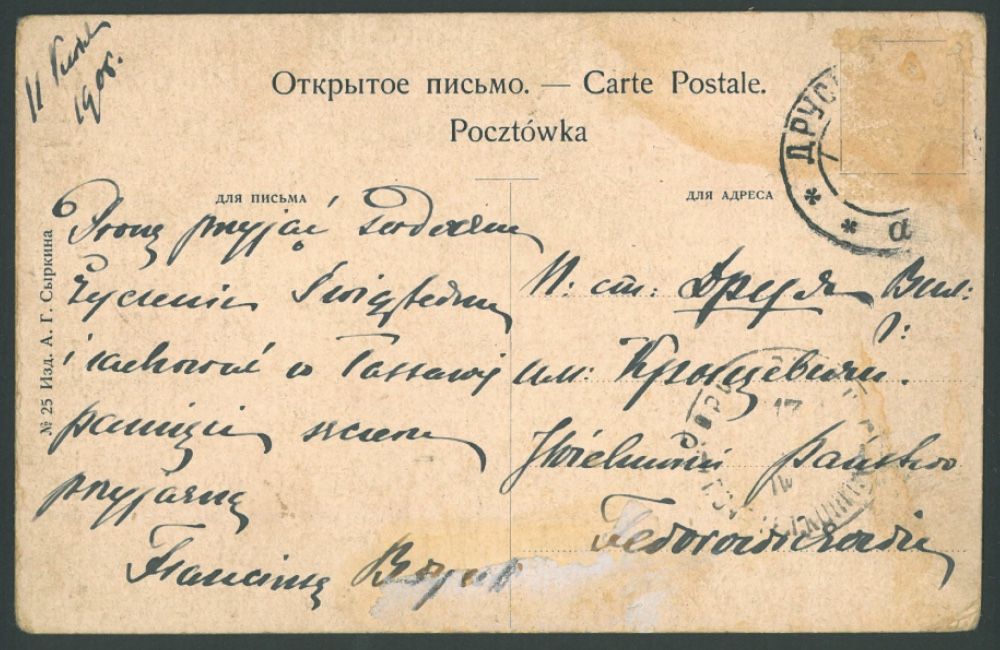 11
1908.
Открытое письмо. — Carte Postale.
Pocztówka
ДРУС
* * а
ДЛЯ ПИСЬМА
ДЛЯ АДРЕСА
№ 25 Изд. А. Г. Сыркина
Proszę przyjąć serdeczne
życzenia Świąteczne
i zachować w łaskawej
pamięci szczerą
przyjaźń
Franciszek
П: ст: Друя Вил:
г:
им:
17
Jwielmożni Państwo
Fedorowiczowie